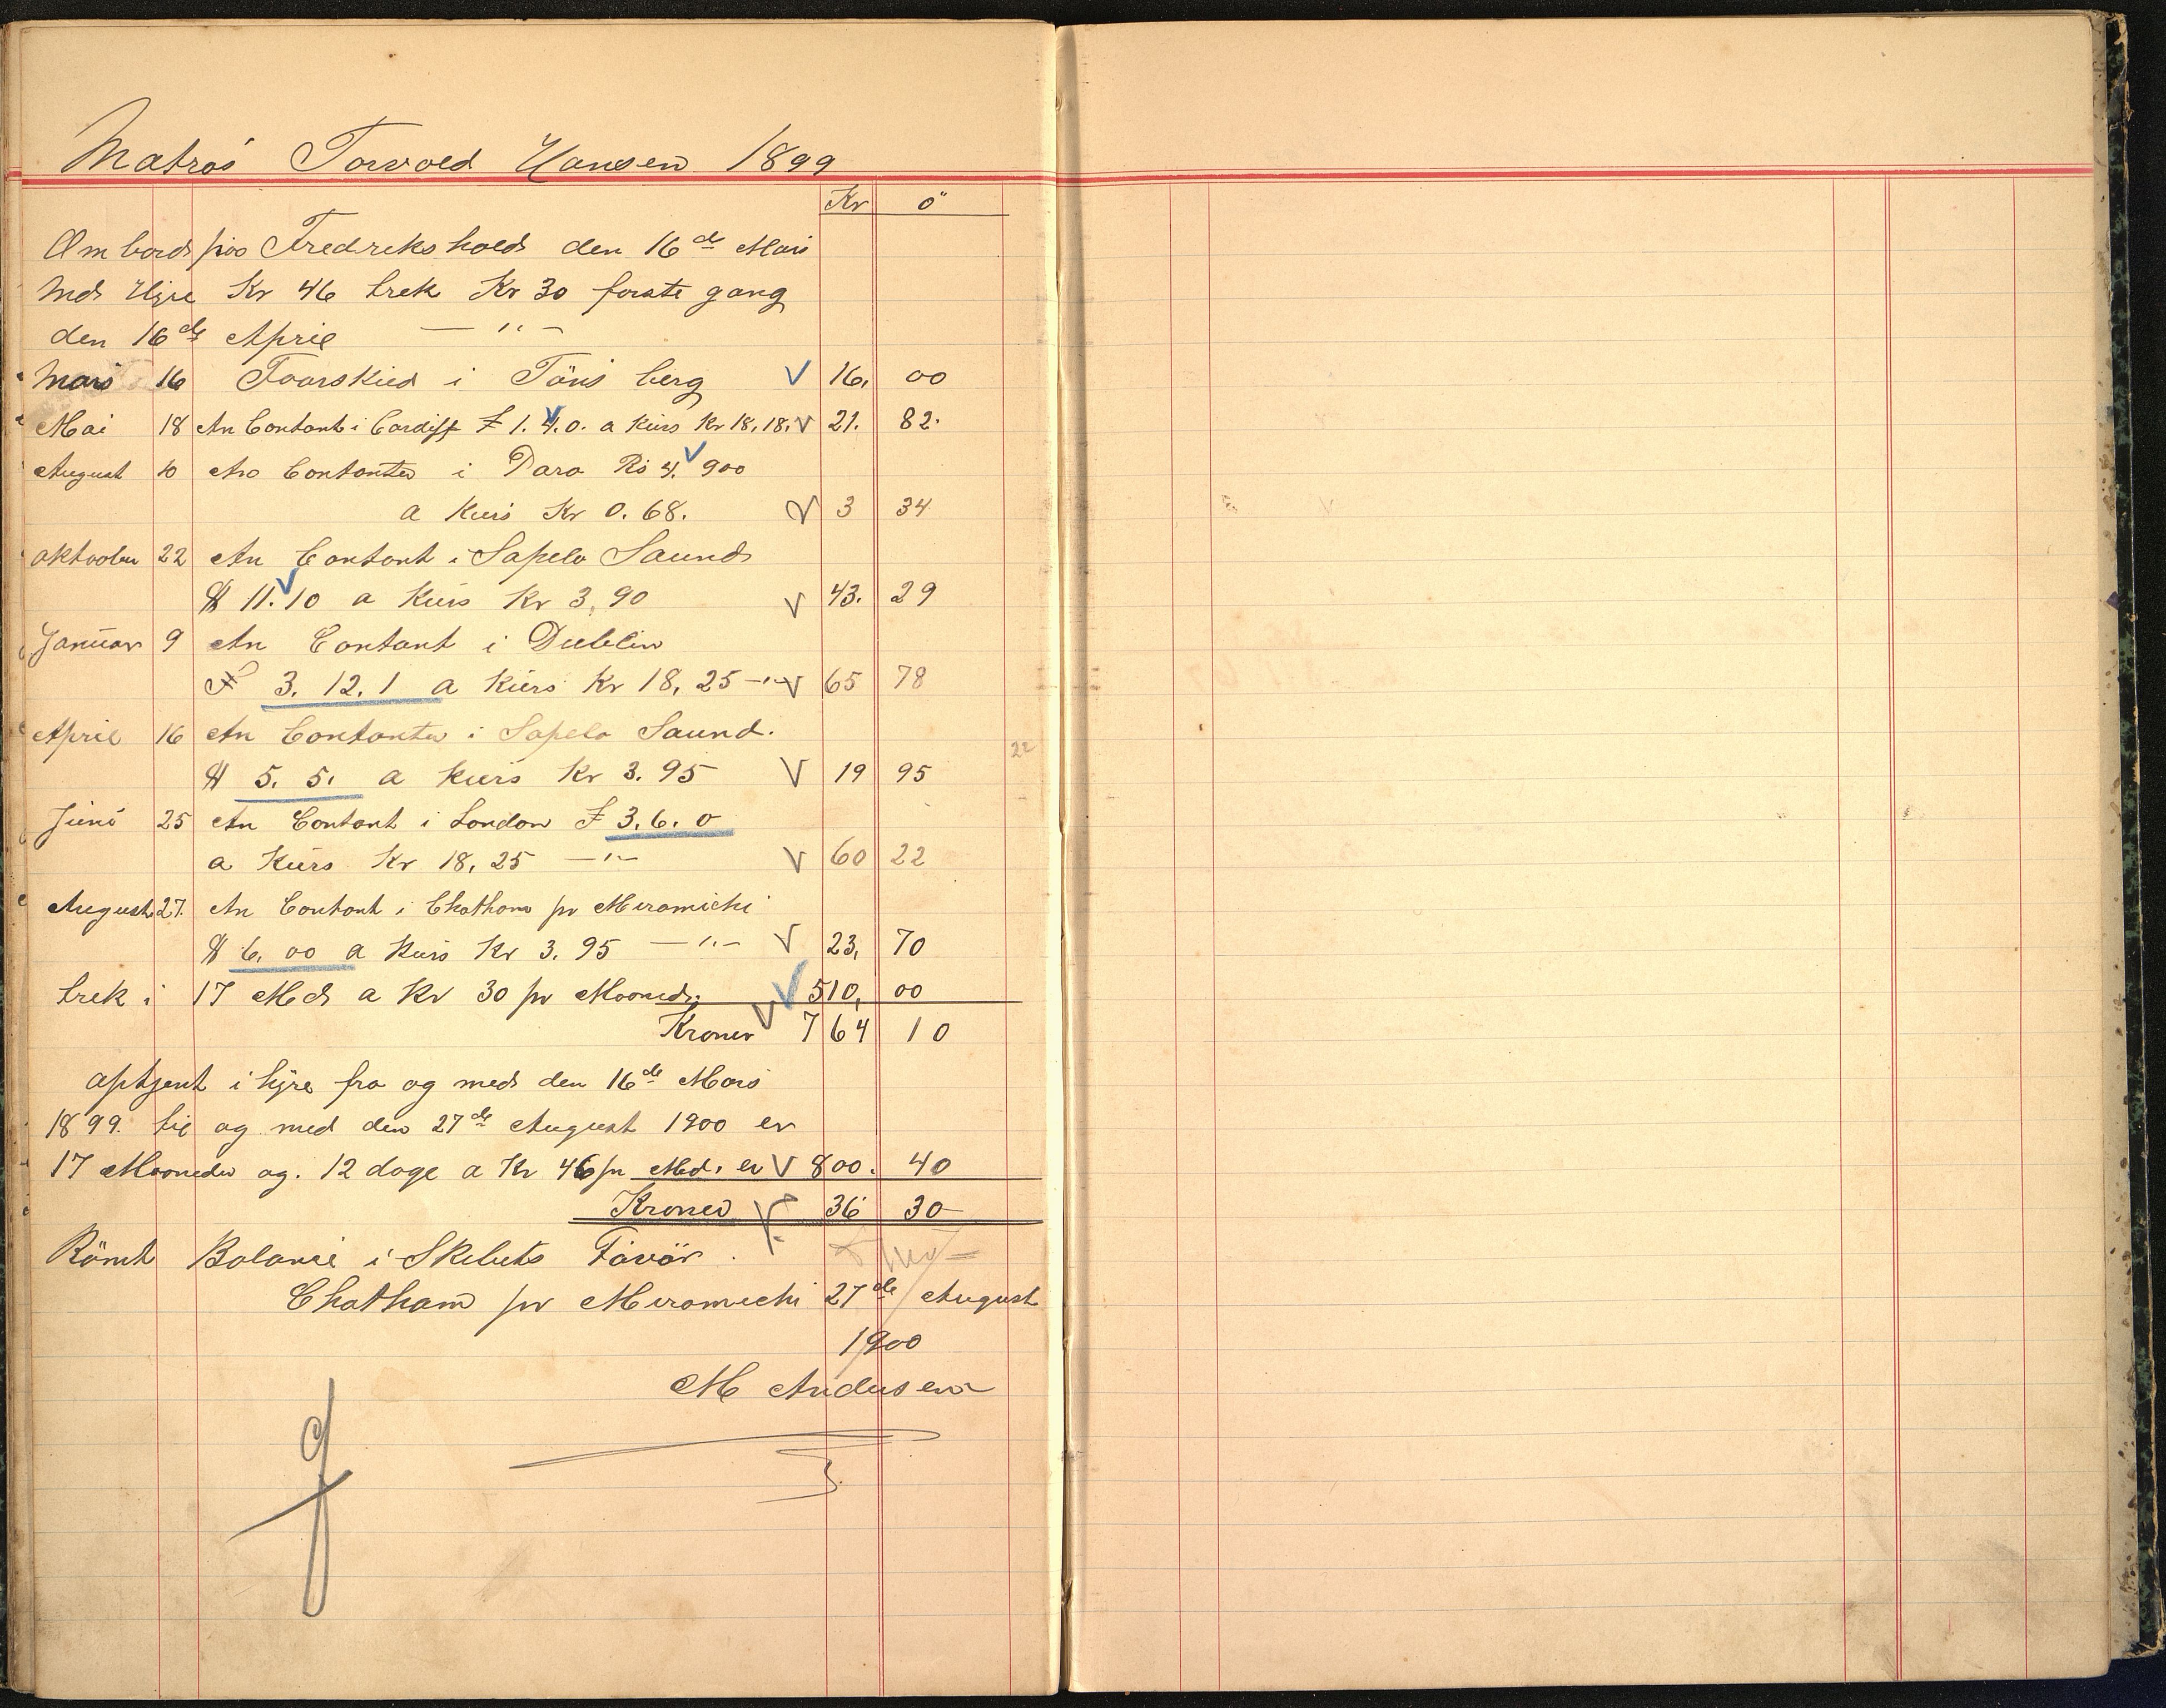 Matros Torvold Hansen 1899
Kr ö
Om bord paa Fredrekshald den 16de Mars
Med Hyre Kr 46 trek Kr 30 forste gang
den 16de April — " —
Mars 16 Foorskud i Töns berg √ 16, 00
Mai 18 An Contant i Cardiff £ 1. 4. 0. a Kurs Kr 18, 18. √ 21. 82.
August 10 An Contanter i Para Rs 4. 900
a Kurs Kr 0. 68. √ 3 34
oktoober 22 An Contant i Sapelo Saund
$ 11. 10 a Kurs Kr 3, 90 √ 43. 29
Januar 9 An Contant i Dublin
£ 3. 12. 1 a Kurs Kr 18, 25 —"— √ 65 78
April 16 An Contanter i Sapelo Saund.
$ 5. 5. a Kurs Kr 3. 95 √ 19 95
22
Juni 25 An Contant i London £ 3. 6. 0
a Kurs Kr 18, 25 —"— √ 60 22
August 27. An Contant i Chatham pr Meramichi
$ 6. 00 a Kurs Kr 3. 95 —"— √ 23, 70
trek i 17 Md a Kr 30 pr Mooned. √ 510, 00
Kroner √ 764 10
optjent i hyre fra og med den 16de Mars
1899. til og med den 27de August 1900 er
17 Mooneder og. 12 dage a Kr 46 pr Md. er √ 800. 40
Kroner 36 30
Römt Balanse i Skibets Favör.
Chatham pr Meramichi 27de August
1900
M Andersen